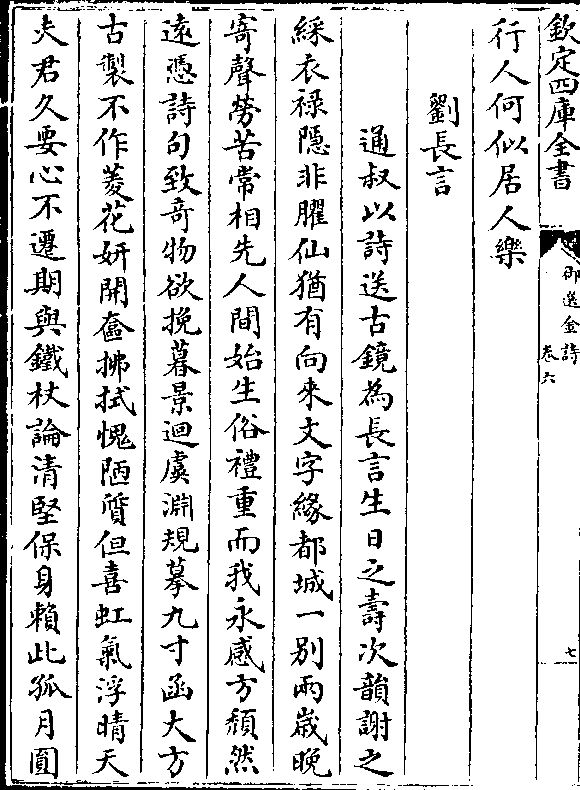 欽定四庫全書
御選金詩
卷六
七
行人何似居人樂
劉長言
通叔以詩送古鏡為長言生日之壽次韻謝之
綵衣祿隱非臞仙猶有向來文字緣都城一別兩歲晚
寄聲勞苦常相先人間始生俗禮重而我永感方頹然
遠憑詩句致奇物欲挽暮景迴虞淵規摹九寸函大方
古製不作菱花妍開奩拂拭愧陋質但喜虹氣浮晴天
夫君久要心不遷期與鐵杖論清堅保身賴此孤月圓